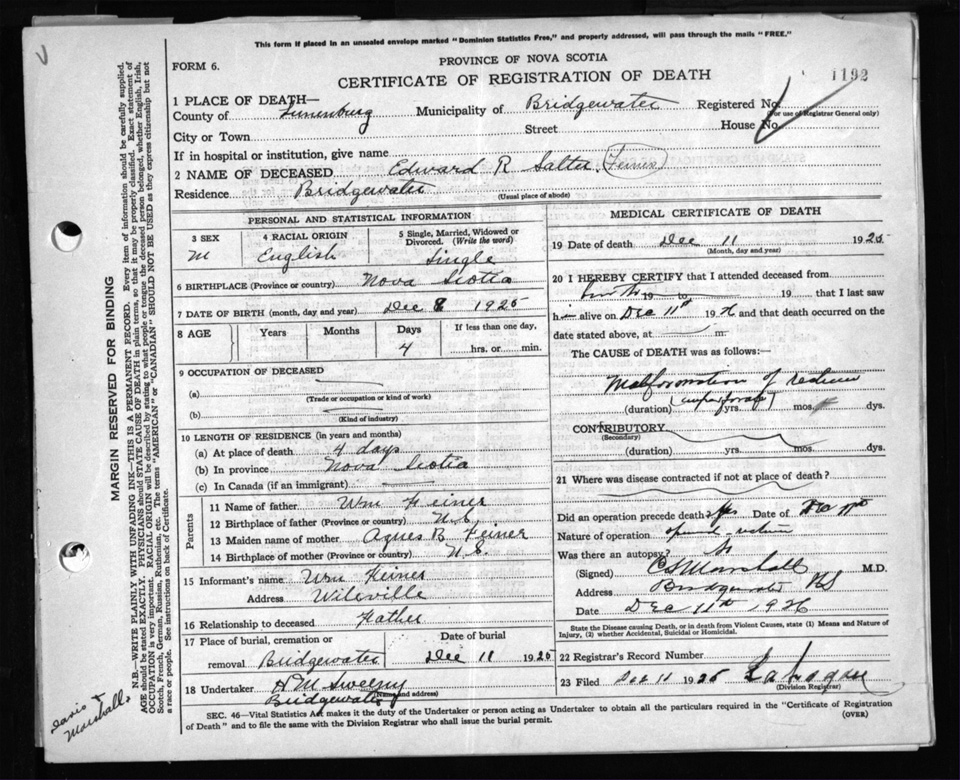 This form if placed in an unsealed envelope marked "Dominion Statistics Free," and properly addressed, will pass through the mails "FREE."
PROVINCE OF NOVA SCOTIA
FORM 6.
CERTIFICATE OF REGISTRATION OF DEATH
1192
1 PLACE OF DEATH—
County of Lunenburg Municipality of Bridgewater Registered No.
(For use of Registrar General only)
City or Town Street House No.
If in hospital or institution, give name
2 NAME OF DECEASED Edward R
Residence Bridgewater
(Usual place of abode)
PERSONAL AND STATISTICAL INFORMATION
3 SEX 4 RACIAL ORIGIN 5 Single, Married, Widowed or Divorced. (Write the word)
M English Single
6 BIRTHPLACE (Province or country) Nova Scotia
7 DATE OF BIRTH (month, day and year) Dec 8 1925
8 AGE Years Months Days If less than one day,
4 hrs. or min.
9 OCCUPATION OF DECEASED
(a)
(Trade or occupation or kind of work)
(b)
(Kind of industry)
10 LENGTH OF RESIDENCE (in years and months)
(a) At place of death 4 days
(b) In province Nova Scotia
(c) In Canada (if an immigrant)
Parents
11 Name of father Wm Feiner
12 Birthplace of father (Province or country) N.S.
13 Maiden name of mother Agnes B. Feiner
14 Birthplace of mother (Province or country) N.S.
15 Informant's name Wm Feiner
Address Wileville
16 Relationship to deceased Father
17 Place of burial, cremation or Date of burial
removal Bridgewater Dec 11 1925
18 Undertaker H M Sweeny
(Name and address)
Bridgewater
MEDICAL CERTIFICATE OF DEATH
19 Date of death Dec 11 1925
(Month, day and year)
20 I HEREBY CERTIFY that I attended deceased from
birth 19 to 19 that I last saw
him alive on Dec 11th 1926 and that death occurred on the
date stated above, at m.
The CAUSE of DEATH was as follows:—
Malformation of rectum
(imperforate)
(duration) yrs. mos. dys.
CONTRIBUTORY
(Secondary)
(duration) yrs. mos. dys.
21 Where was disease contracted if not at place of death?
Did an operation precede death? Yes Date of
Nature of operation
Was there an autopsy?
(Signed) Marshall M.D.
Address Bridgewater NS
Date Dec 11th 1926
State the Disease causing Death, or in death from Violent Causes, state (1) Means and Nature of
Injury, (2) whether Accidental, Suicidal or Homicidal.
22 Registrar's Record Number
23 Filed Dec 11 1925
(Division Registrar)
SEC. 46—Vital Statistics Act makes it the duty of the Undertaker or person acting as Undertaker to obtain all the particulars required in the "Certificate of Registration
of Death" and to file the same with the Division Registrar who shall issue the burial permit.
(OVER)
MARGIN RESERVED FOR BINDING
N.B.—WRITE PLAINLY WITH UNFADING INK—THIS IS A PERMANENT RECORD. Every item of information should be carefully supplied.
AGE should be stated EXACTLY. PHYSICIANS should STATE CAUSE OF DEATH in plain terms, so that it may be properly classified. Exact statement of
OCCUPATION is very important. RACIAL ORIGIN will be described by stating to what people or tongue the deceased person belonged, whether English, Irish,
Scotch, French, German, Russian, Ruthenian, etc. The terms "AMERICAN" or "CANADIAN" SHOULD NOT BE USED as they express citizenship but not
a race or people. See instructions on back of Certificate.
Davis +
Marshall